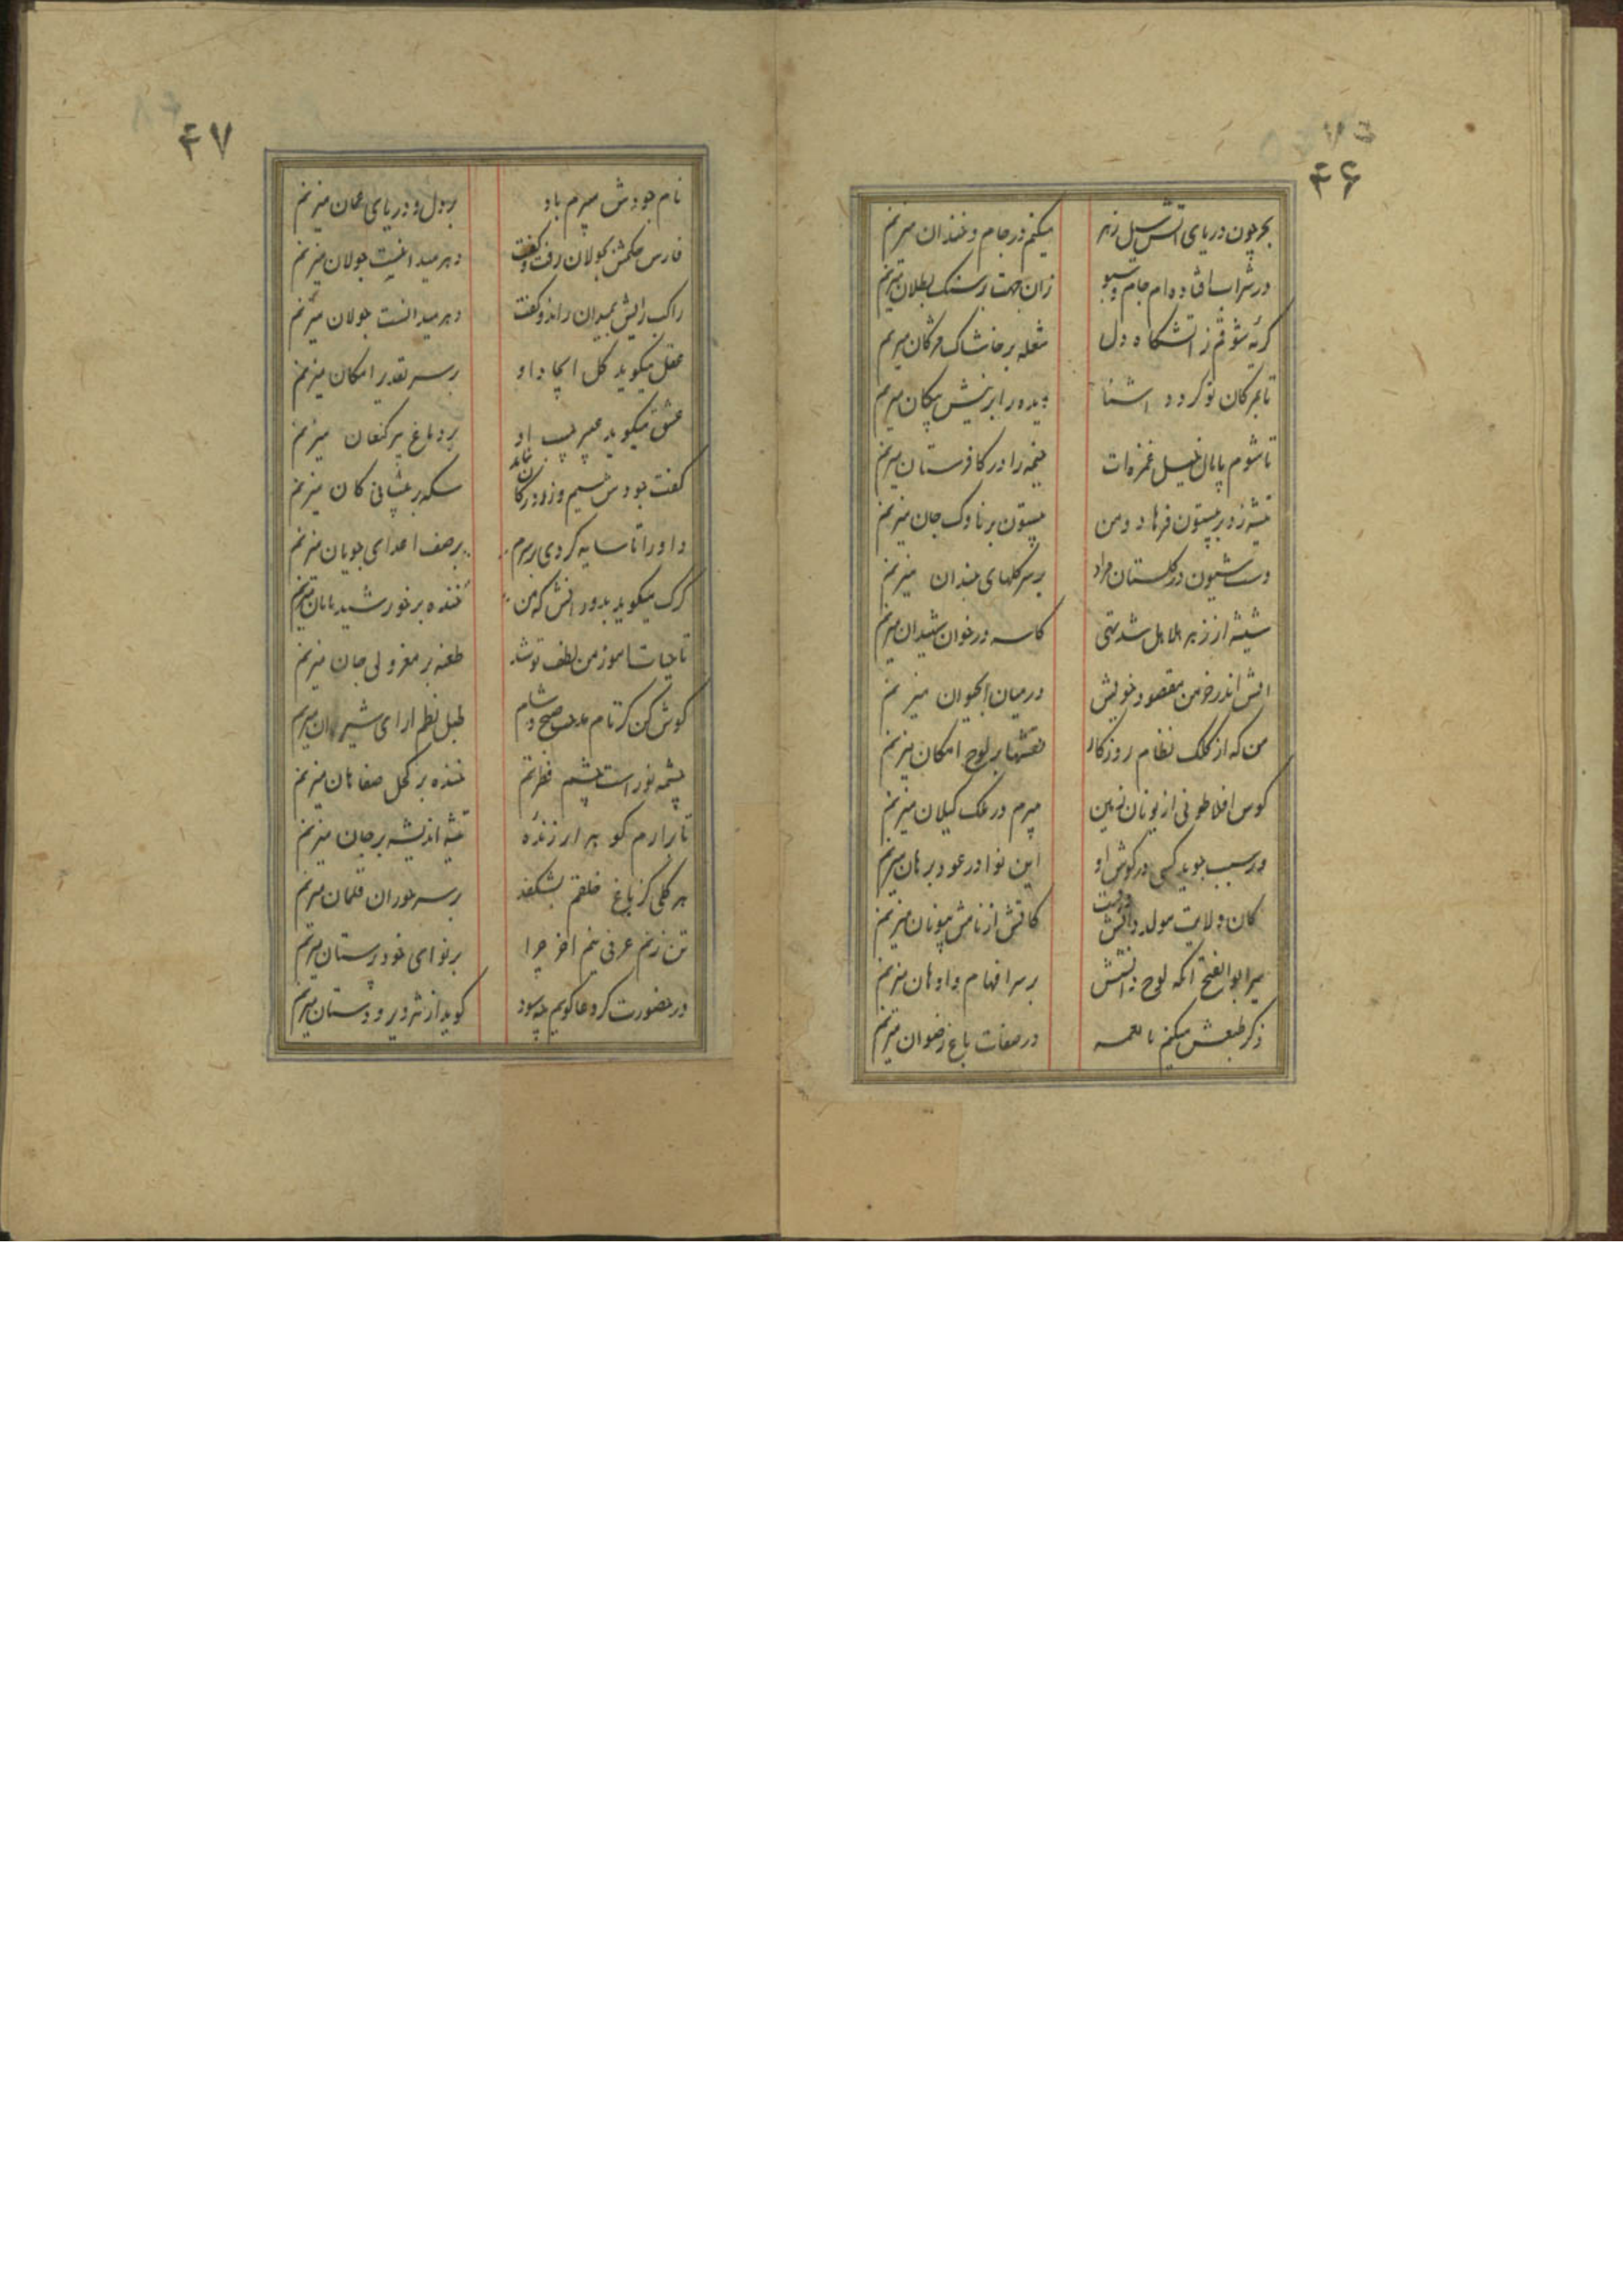 ۴۶
بحر چون دریای آتش سیل زهر
میکنم در جام و خندان میزنم
در شراب افتاده ام جام و سبو
زان جهت بر سنک بطلان میزنم
کریه شوقم ز آتشکاه دل
شعله بر خاشاک مژکان میزنم
تا بمژکان تو کردد آشنا
دیده را بر نیش پیکان میزنم
تا شوم پامال خیل غمزه ات
خیمه را در کافرستان میزنم
تیشه زد بر بیستون فرهاد و من
بیستون بر ناوک جان میزنم
دست شیون در کلستان مراد
بر سر کلهای خندان میزنم
شیشه از زهر هلاهل شد تهی
کاسه در خوان شهیدان میزنم
آتش اندر خرمن مقصود خویش
در میان آبحیوان میزنم
من که از کلک نظام روزکار
نقشها بر لوح امکان میزنم
کوس افلاطونی از یونان زمین
میبرم در ملک کیلان میزنم
ور سبب جوید کسی در کوش او
این نوا در عود برهان میزنم
کان ولایت مولد دانش
کاتش از نامش بیونان میزنم
میر ابوالفتح آنکه لوح دانشش
بر سر افهام و اوهان میزنم
ذکر طبعش میکنم با نغمه
در صفات باغ رضوان میزنم
۴۷
نام جودش میبرم باد
بر دل و دریای عمان میزنم
فارس حکمش بجولان رفت و کفت
در هر میدانیست جولان میزنم
راکب رایش بمیدان راند و کفت
در هر میدانست جولان میزنم
عقل میکوید کل ایجاد او
بر سر تقدیر امکان میزنم
عشق میکوید عبیر جیب او
بر دماغ پیر کنعان میزنم
کفت جودش سیم و زر در کان نماند
سکه بر پیشانی کان میزنم
داورا تا سایه کردی بر سرم
بر صف اعدای جویان میزنم
کرک میکوید بدوران کش که من
خنده بر خورشید تابان میزنم
تا حیات آموز من لطف تو شد
طعنه بر معزولی جان میزنم
کوش کن کز نام مدحت صبح و شام
طبل نظم آرای شیروان میزنم
چشمه نور است چشم فطرتم
خنده بر کحل صفاهان میزنم
تا برارم کوهر ارزنده
تیشه اندیشه بر جان میزنم
هر کلی کز باغ خلقم بشکفد
بر سر حوران غلمان میزنم
تن زنم عرفی نیم آخر چرا
بر نوای خود پرستان میزنم
در حضورت کر دعا کویم چه سود
کوید از تزویر و دستان میزنم